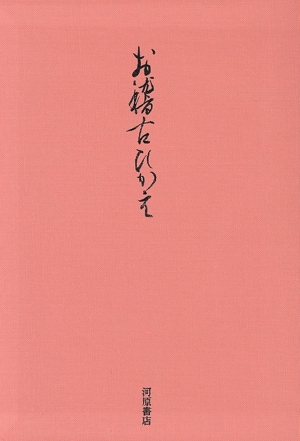 お稽古ひかえ
河原書店